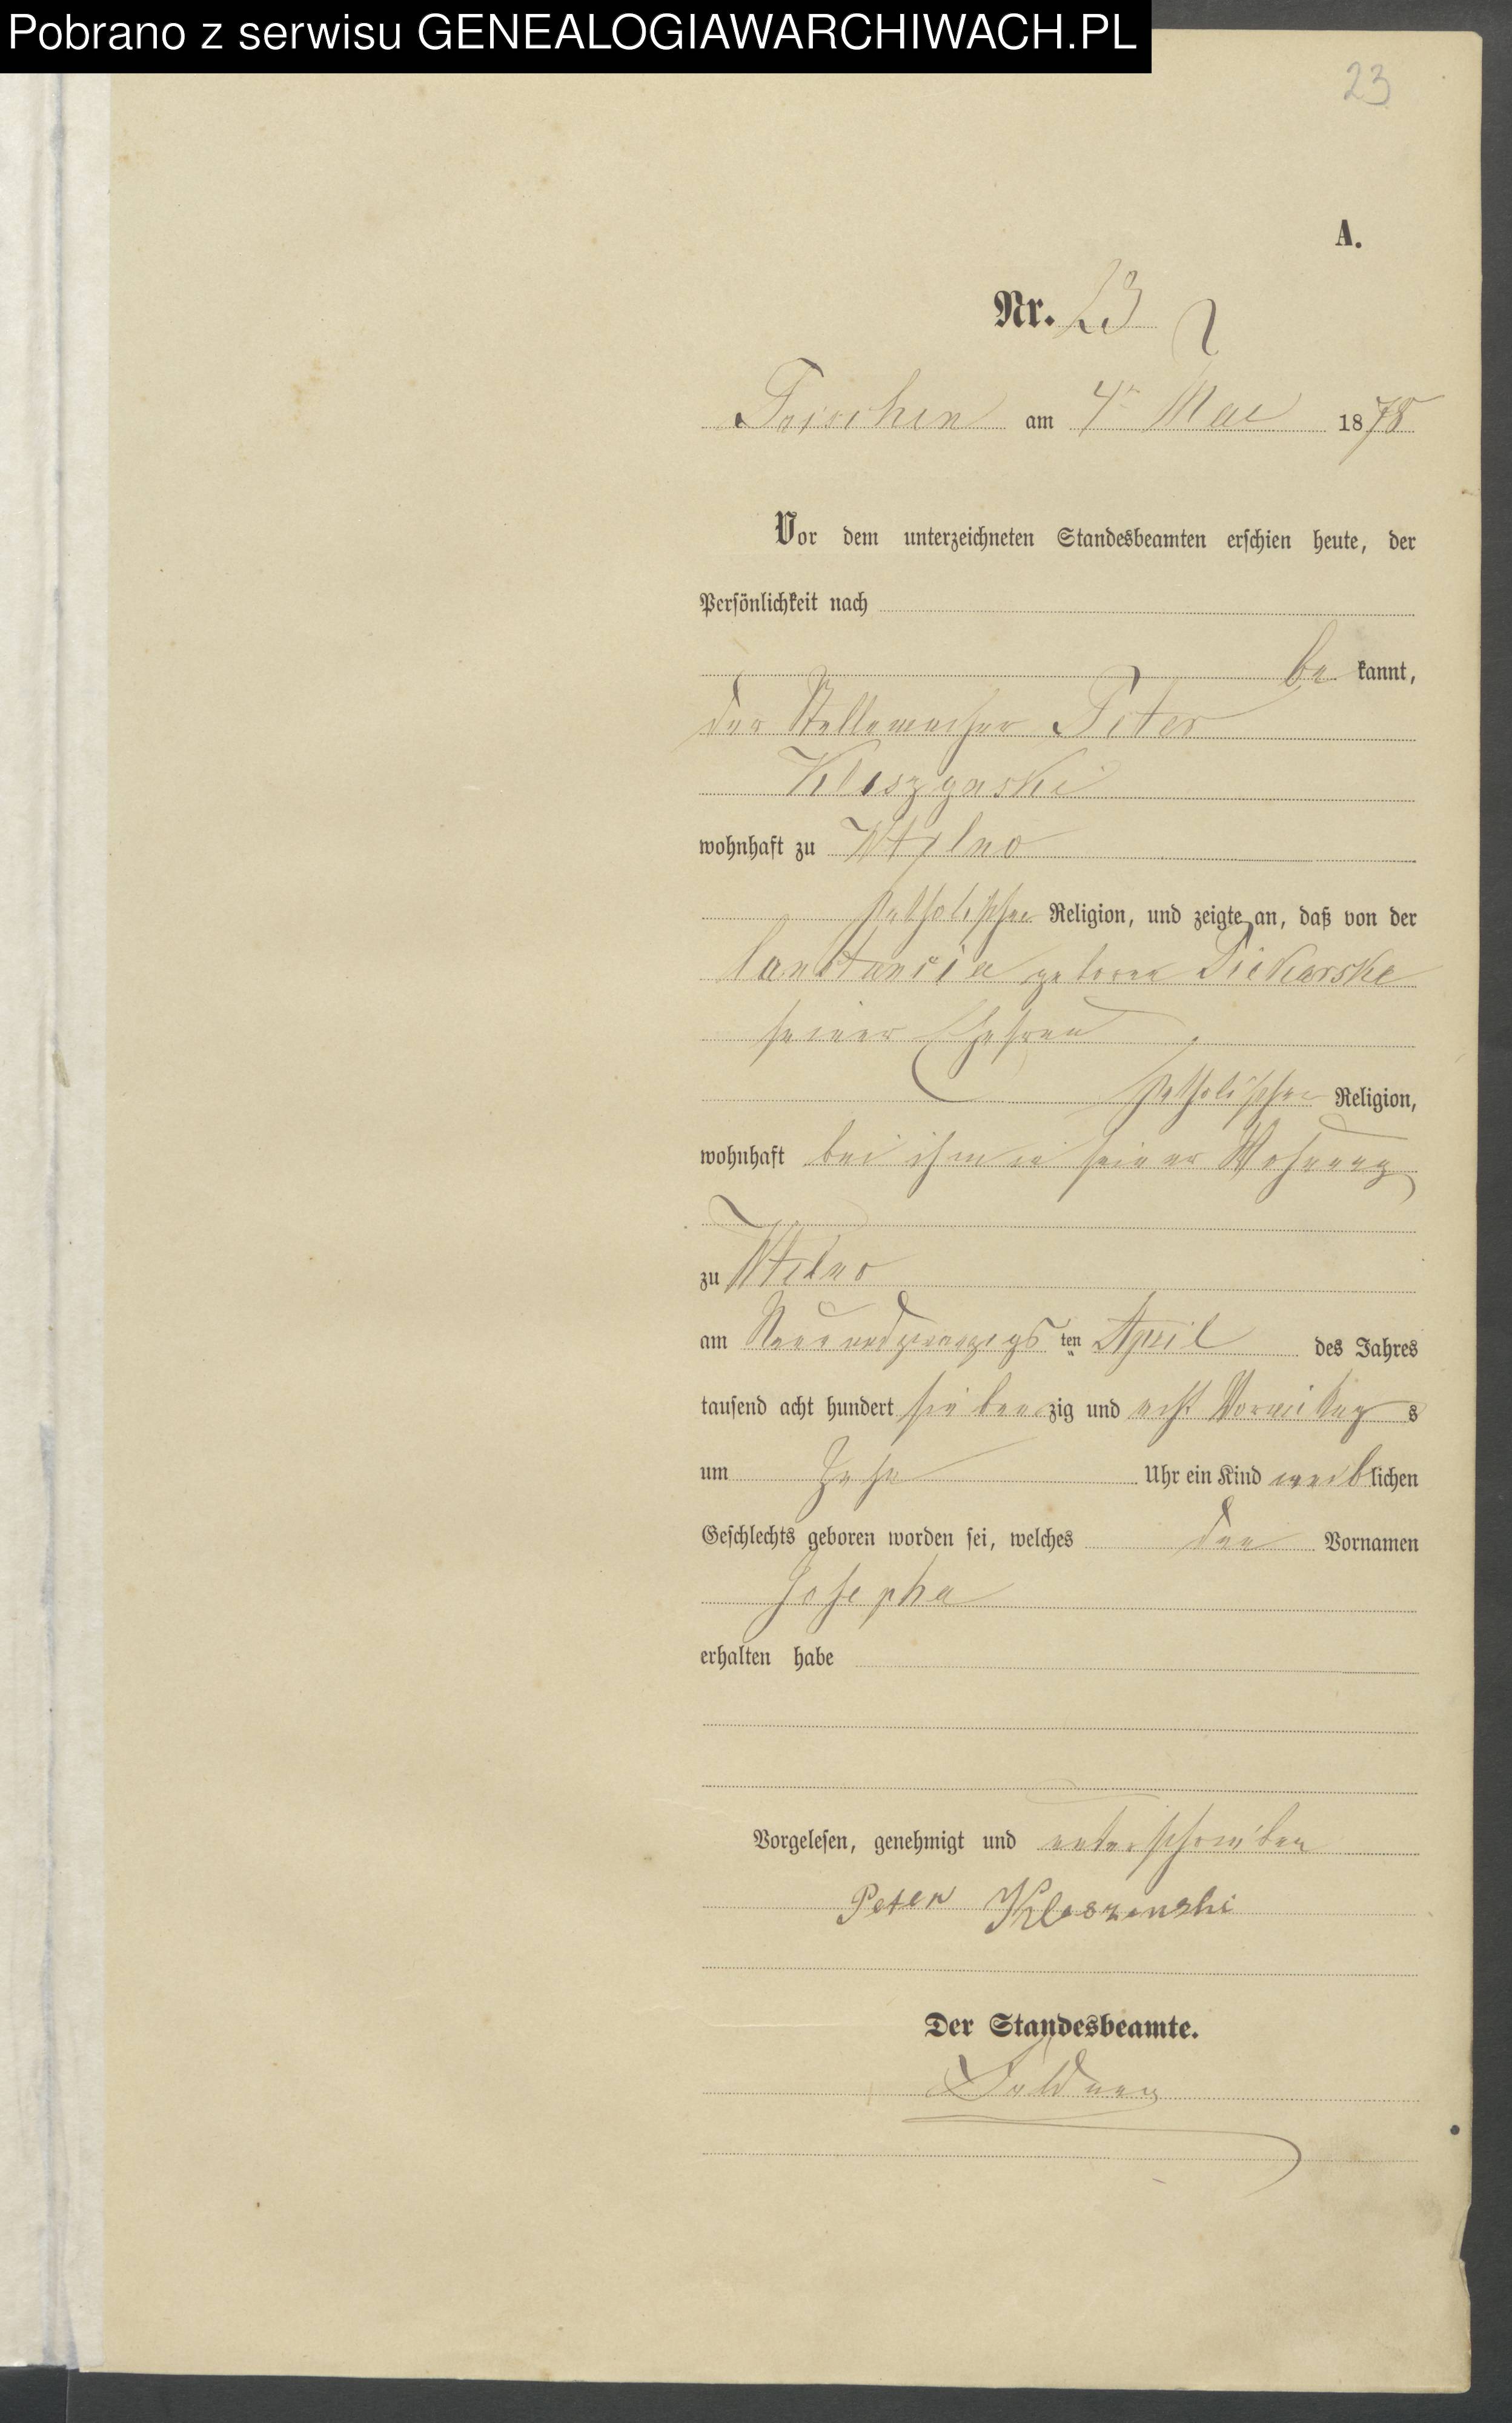 Pobrano z serwisu GENEALOGIAWARCHIWACH.PL
23
A.
Nr. 23
am 4ten Mai 1878
Vor dem unterzeichneten Standesbeamten erschien heute, der
Persönlichkeit nach
be kannt,
der Stellmacher Peter
wohnhaft zu
katholischer Religion, und zeigte an, daß von der
Constancia geborene
seiner Ehefrau
katholischer Religion,
wohnhaft bei ihm in seiner Wohnung
zu
am Neunundzwanzigsten April des Jahres
tausend acht hundert siebenzig und acht Vormittags
um Zehn Uhr ein Kind weiblichen
Geschlechts geboren worden sei, welches den Vornamen
Josepha
erhalten habe
Vorgelesen, genehmigt und unterschrieben
Peter
Der Standesbeamte.